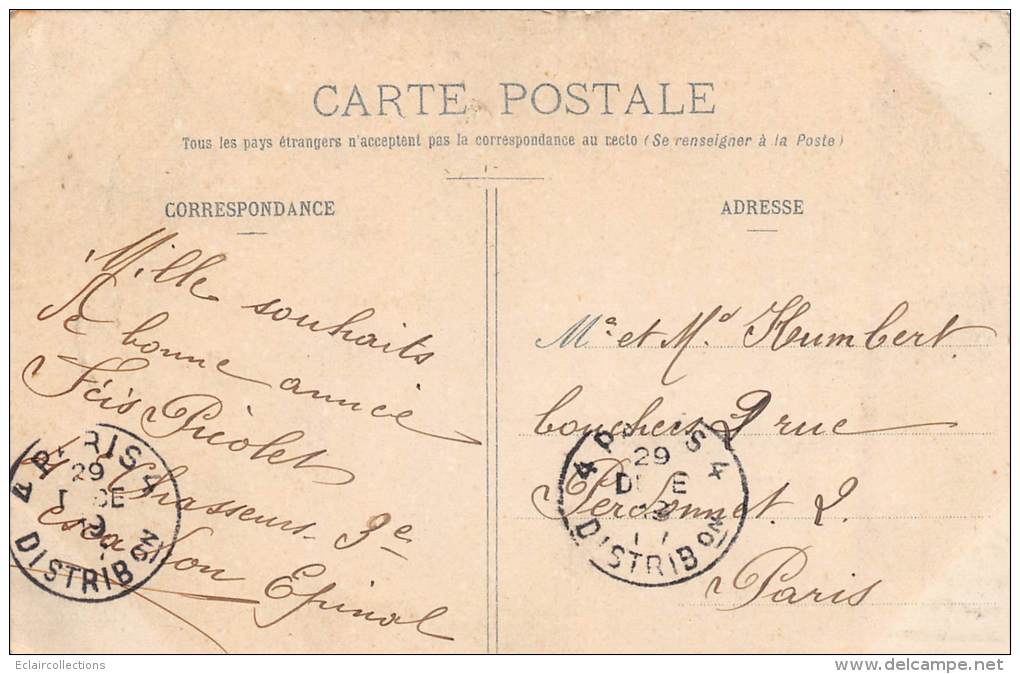 CARTE POSTALE
Tous les pays étrangers n'acceptent pas la correspondance au recto (Se renseigner à la Poste)
CORRESPONDANCE
Mille souhaits
de bonne année
Fçis Picolet
4e Chasseurs 3e
escadron Epinal
PARIS 4
29
DISTRIBON
ADRESSE
Me et Mr Humbert
bouchers 2 rue
Perdonnet 2.
Paris
4 PARIS 4
29
DISTRIBON
Eclaircollections
delcampe.net